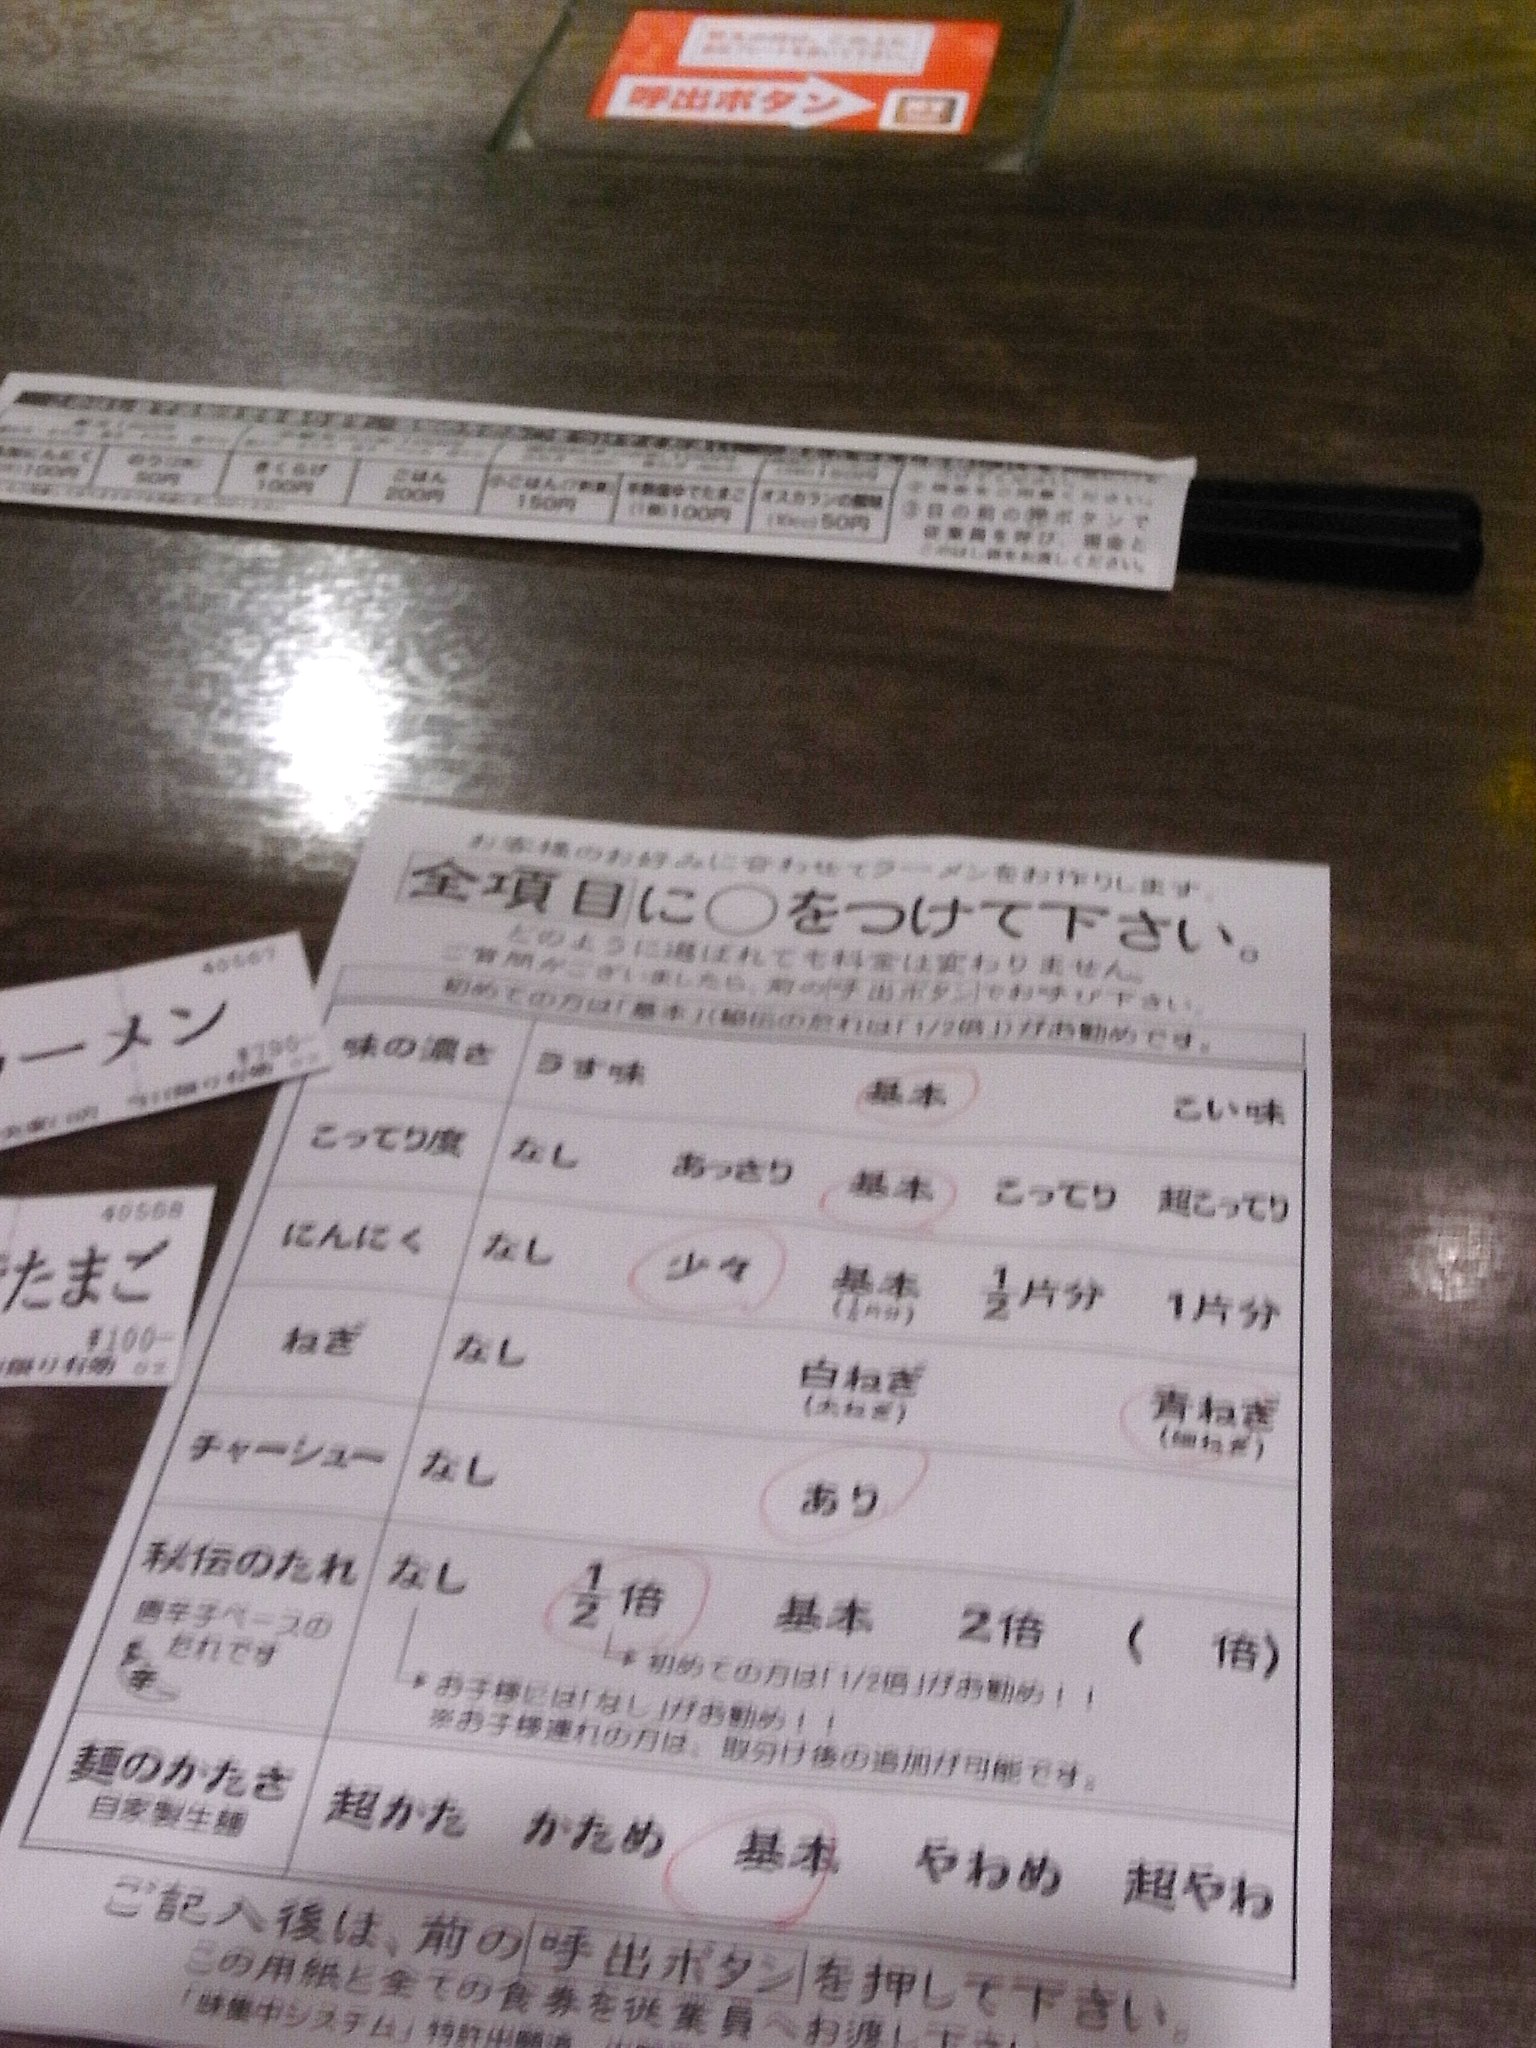 呼出ボタン
にんにく
100円
50円
きくらげ
100円
ごはん
200円
150円
半熟塩ゆでたまご
100円
オスカランの酸味
50円
③目の前の押ボタンで
従業員を呼び、現金と
このはし袋をお渡しください。
お客様のお好みに合わせてラーメンをお作りします。
全項目に○をつけて下さい。
どのように選ばれても料金は変わりません。
ご質問がございましたら、前の呼出ボタンでお呼び下さい。
初めての方は「基本」(秘伝のたれは「1/2倍」)がお勧めです。
味の濃さ うす味 基本 こい味
こってり度 なし あっさり 基本 こってり 超こってり
にんにく なし 少々 基本 1/2片分 1片分
ねぎ なし 白ねぎ (大ねぎ) 青ねぎ (細ねぎ)
チャーシュー なし あり
秘伝のたれ なし 1/2倍 基本 2倍 ( 倍)
唐辛子ベースの
たれです
辛
初めての方は「1/2倍」がお勧め！！
お子様には「なし」がお勧め！！
※お子様連れの方は、取分け後の追加が可能です。
麺のかたさ 超かた かため 基本 やわめ 超やわ
自家製生麺
ご記入後は、前の呼出ボタンを押して下さい。
この用紙と全ての食券を従業員へお渡し下さい
「味集中システム」特許出願済
40567
ーメン
¥790-
40568
たまご
¥100-
限り有効